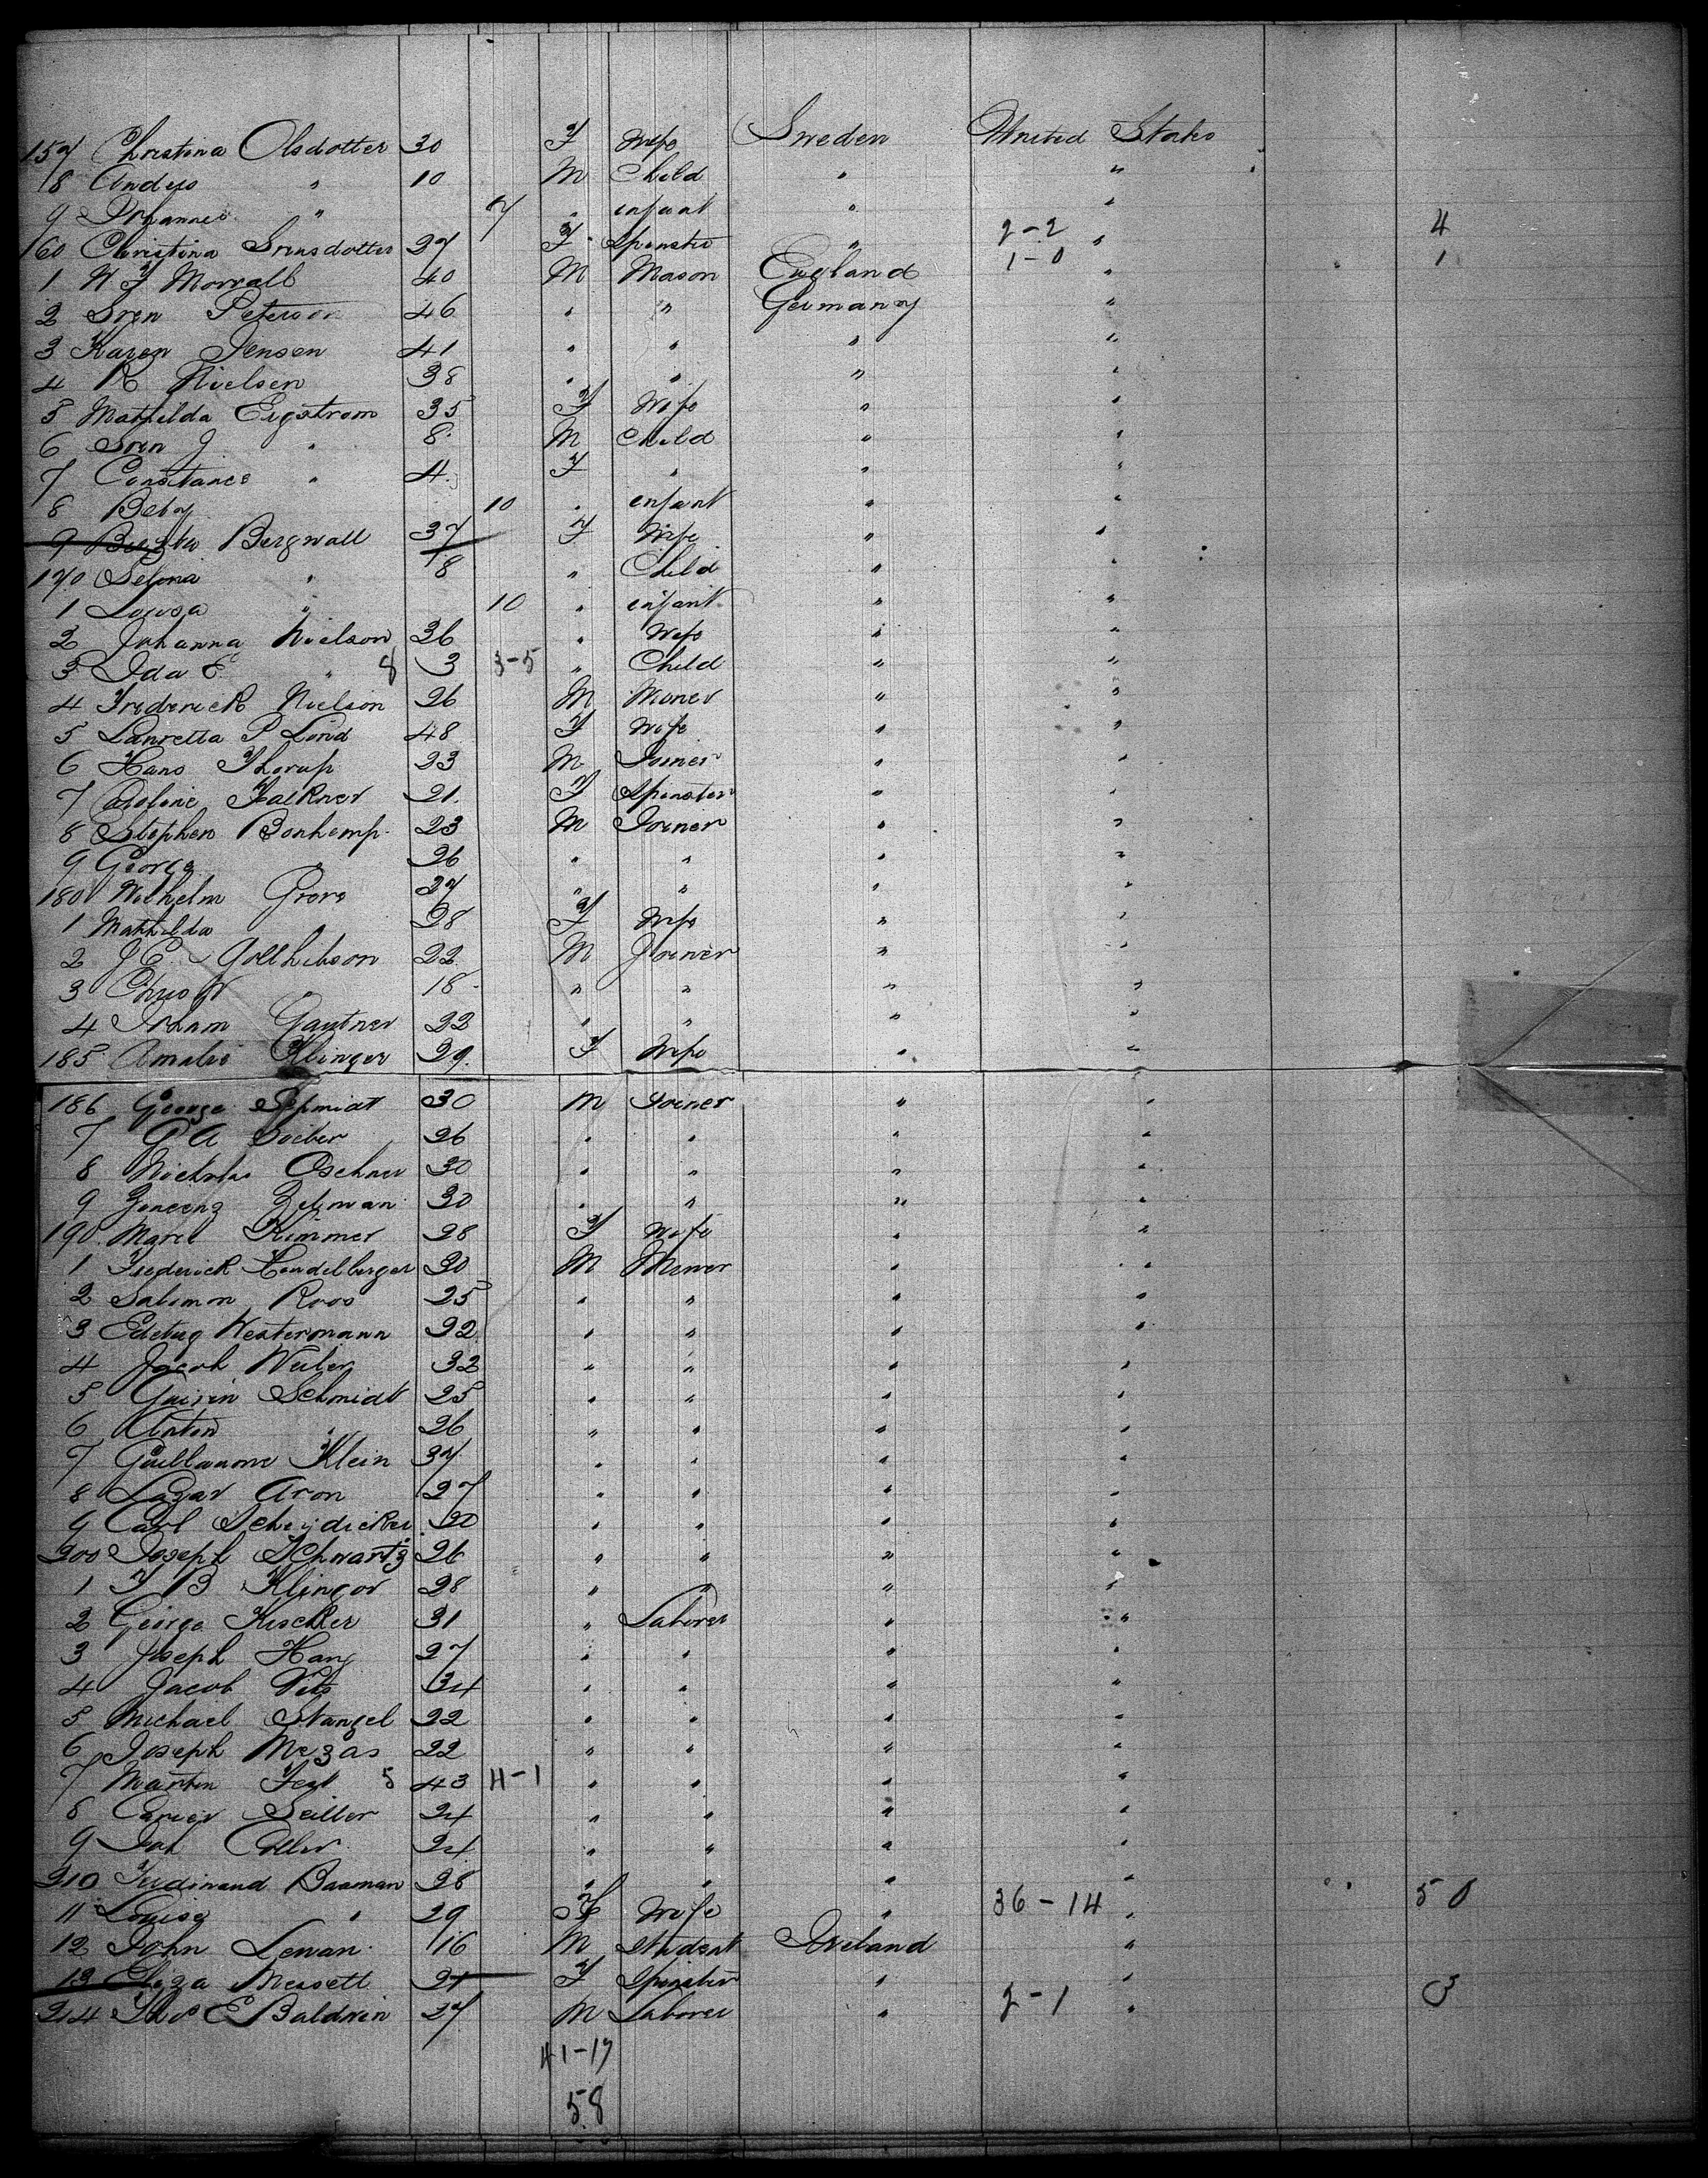 157 Christina Olsdotter 30 F Wife Sweden United States
8 Anders " 10 M Child " "
9 Johannes " 7 " infant " "
160 Christina Svensdotter 27 F Spinster " 2-2 " 4
1 W J Morrall 40 M Mason England 1-0 " 1
2 Sven Peterson 46 " " Germany "
3 Karen Jensen 41 " " " "
4 R Nielsen 38 " " " "
5 Mathilda Engstrom 35 F Wife " "
6 Sven J " 8 M Child " "
7 Constance " 4 F " " "
8 Beby 10 " infant " "
9 Bergwall 37 F Wife " "
170 Selma " 8 " Child " "
1 Lovisa " 10 " infant " "
2 Johanna Nielson 36 " Wife " "
3 Ida E " 8 3 3-5 " Child " "
4 Frederick Nielson 26 M Miner " "
5 Lauretta P Lind 48 F Wife " "
6 Hans Thorup 23 M Joiner " "
7 Falkner 21 F Spinster " "
8 Stephen Bonhemp 23 M Joiner " "
9 George " 26 " " " "
180 Wilhelm Grove 27 " " " "
1 Mathilda " 28 F Wife " "
2 J C 22 M Joiner " "
3 " 18 " " " "
4 Gautner 22 " " " "
185 Amalie Klinger 29 F Wife " "
186 George Schmidt 30 M Joiner " "
7 G A 26 " " " "
8 Nicholas Oschner 30 " " " "
9 30 " " " "
190 Marie Kimmer 28 F Wife " "
1 Frederick Hendelberger 30 M Miner " "
2 Salomon Roos 25 " " " "
3 Westermann 32 " " " "
4 Jacob Weiler 32 " " " "
5 Schmidt 25 " " " "
6 Anton " 26 " " " "
7 Guillaume Klein 37 " " " "
8 Lazar Aron 27 " " " "
9 Carl 30 " " " "
200 Joseph Schwartz 26 " " " "
1 F B Klinger 28 " " " "
2 George Kischler 31 " Laborer " "
3 Joseph Hang 27 " " " "
4 Jacob 34 " " " "
5 Michael Stangel 22 " " " "
6 Joseph Mezas 22 " " " "
7 Martin 5 43 4-1 " " " "
8 Seiller 24 " " " "
9 Joh 24 " " " "
210 Ferdinand Baaman 28 " " " "
11 Louise " 29 F Wife " 36-14 " 50
12 John Lenan 16 M Student Ireland "
13 Eliza Messett 21 F Spinster " "
214 Thos E Baldwin 27 M Laborer " 2-1 " 3
41-17
58